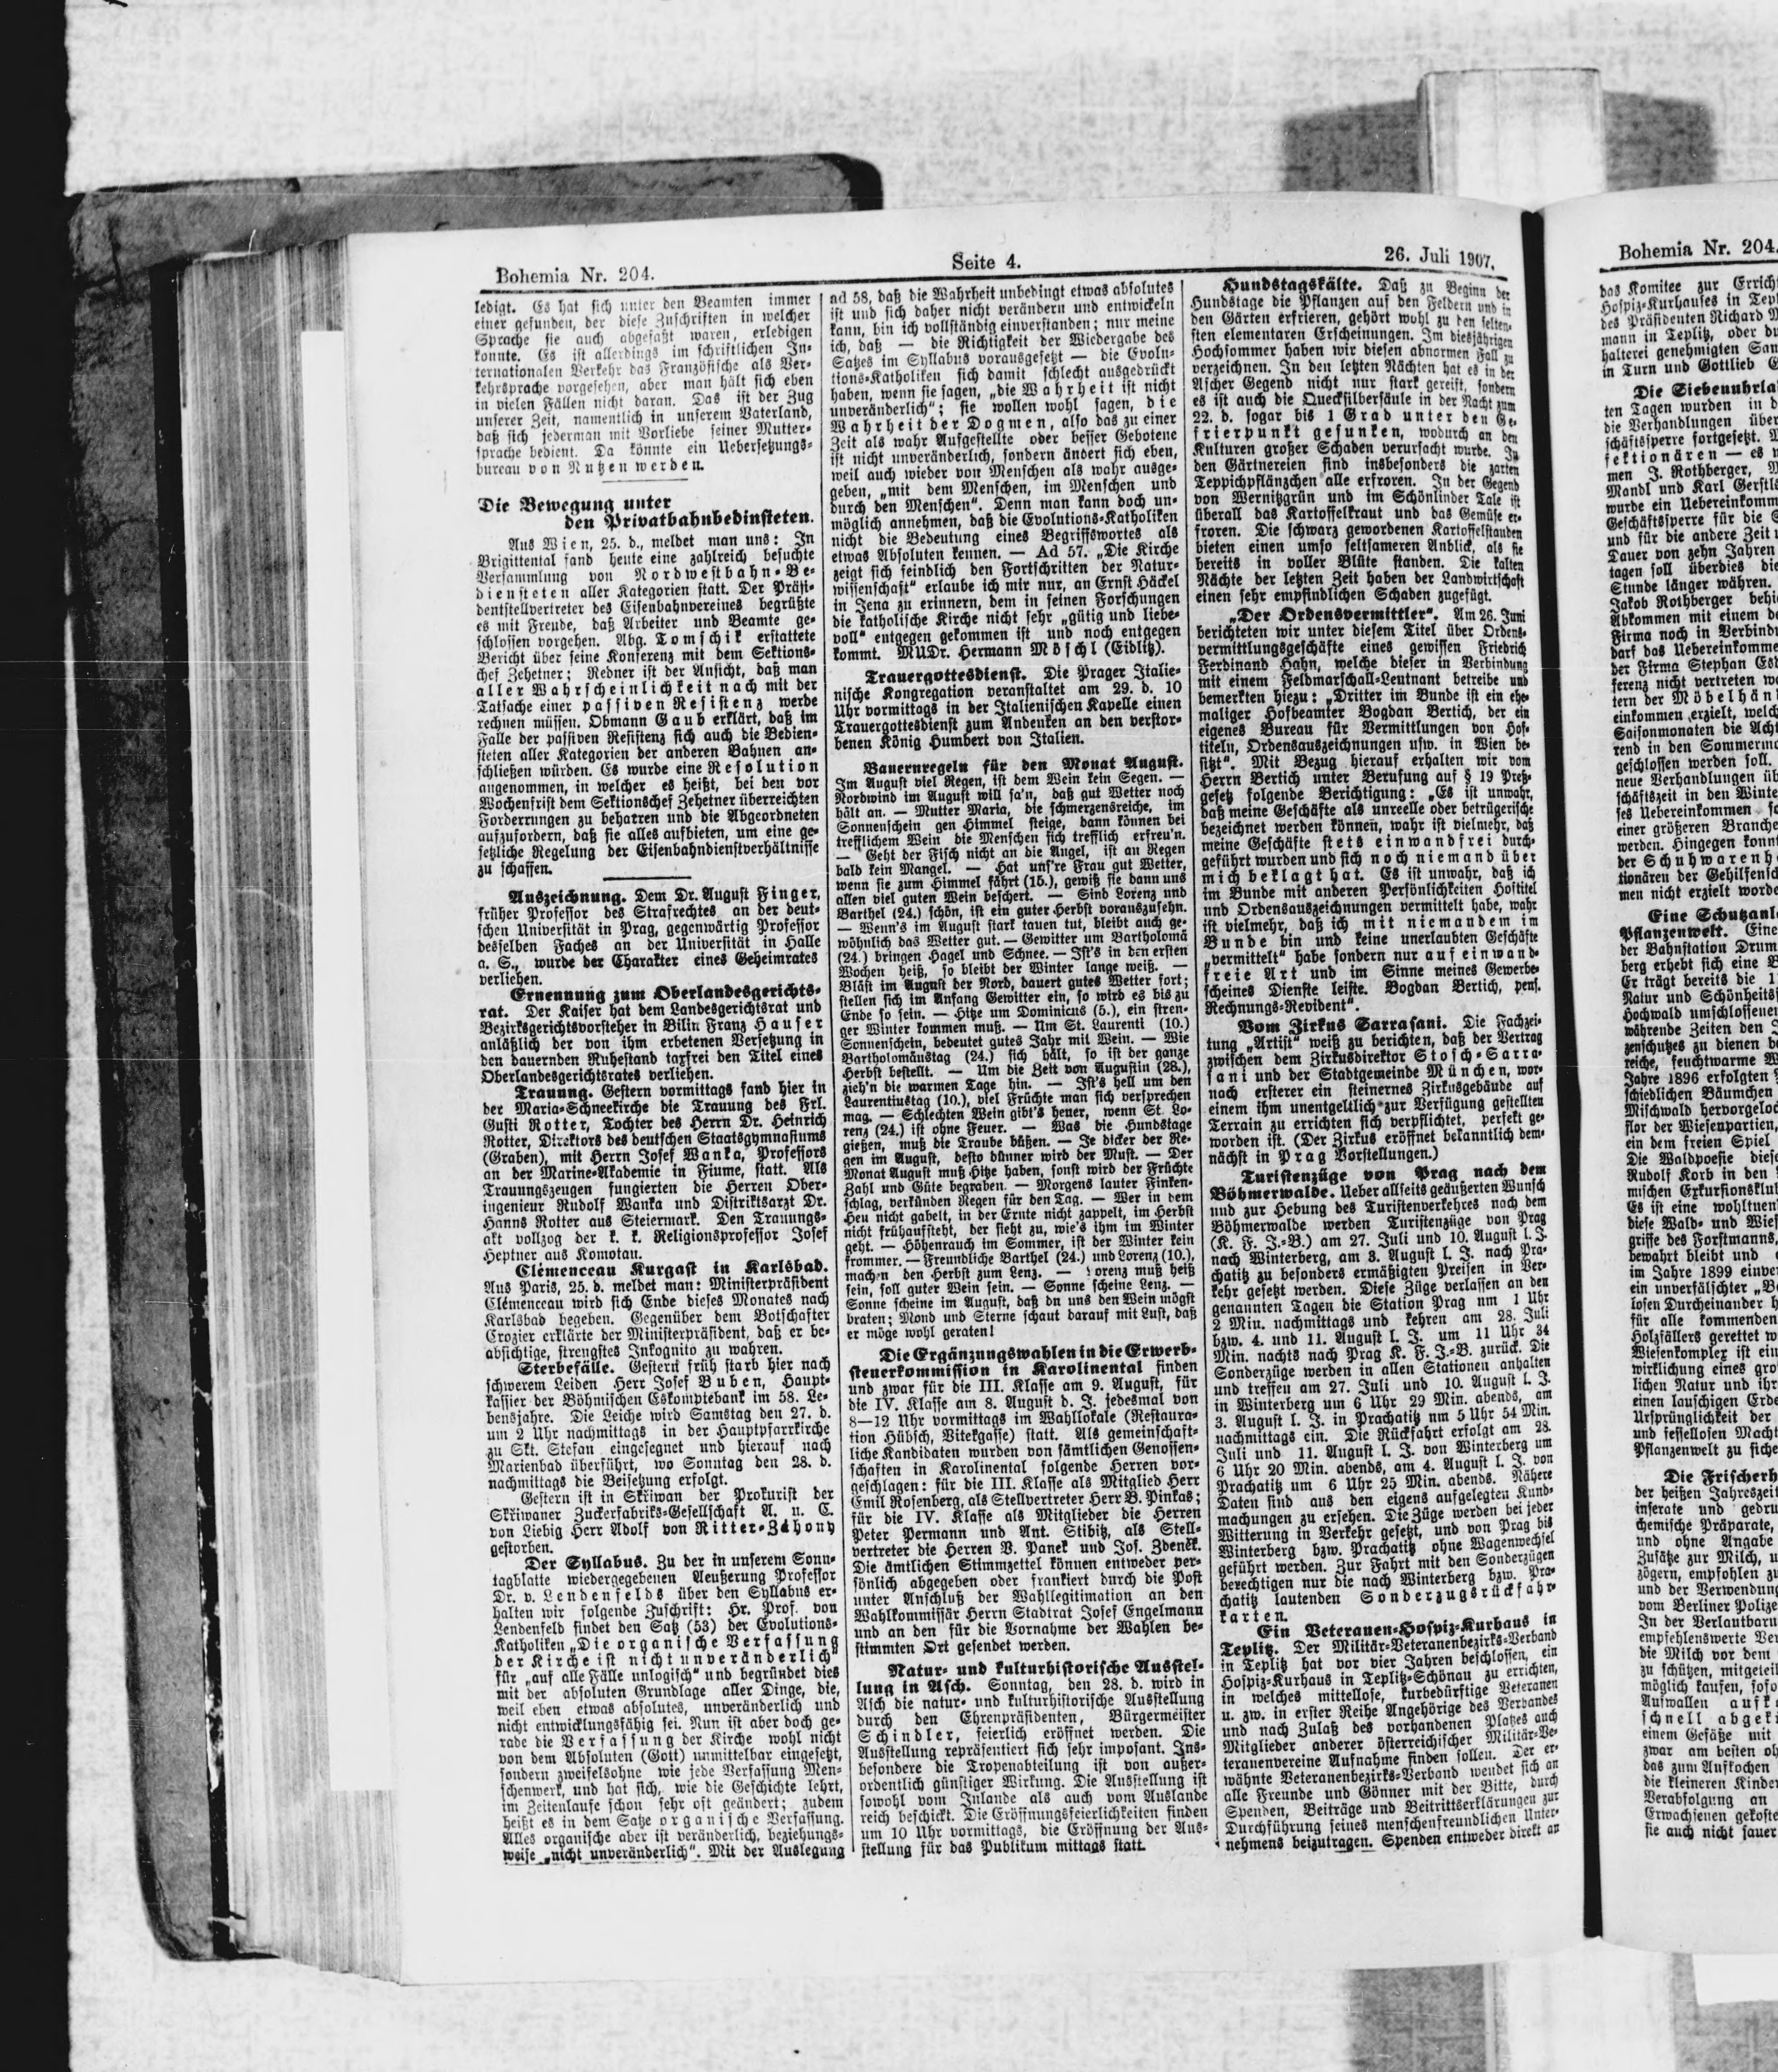 Bohemia Nr. 204.
Seite 4.
26. Juli 1907.
ledigt. Es hat sich unter den Beamten immer
einer gefunden, der diese Zuschriften in welcher
Sprache sie auch abgefaßt waren, erledigen
konnte. Es ist allerdings im schriftlichen In-
ternationalen Verkehr das Französische als Ver-
kehrsprache vorgesehen, aber man hält sich eben
in vielen Fällen nicht daran. Das ist der Zug
unserer Zeit, namentlich in unserem Vaterland,
daß sich jederman mit Vorliebe seiner Mutter-
sprache bedient. Da könnte ein Uebersetzungs-
bureau von Nutzen werden.
Die Bewegung unter
den Privatbahnbediensteten.
Aus Wien, 25. d., meldet man uns: In
Brigittental fand heute eine zahlreich besuchte
Versammlung von Nordwestbahn-Be-
diensteten aller Kategorien statt. Der Präsi-
dentstellvertreter des Eisenbahnvereines begrüßte
es mit Freude, daß Arbeiter und Beamte ge-
schlossen vorgehen. Abg. Tomschik erstattete
Bericht über seine Konferenz mit dem Sektions-
chef Zehetner; Redner ist der Ansicht, daß man
aller Wahrscheinlichkeit nach mit der
Tatsache einer passiven Resistenz werde
rechnen müssen. Obmann Gaub erklärt, daß im
Falle der passiven Resistenz sich auch die Bedien-
steten aller Kategorien der anderen Bahnen an-
schließen würden. Es wurde eine Resolution
angenommen, in welcher es heißt, bei den vor
Wochenfrist dem Sektionschef Zehetner überreichten
Forderrungen zu beharren und die Abgeordneten
aufzufordern, daß sie alles aufbieten, um eine ge-
setzliche Regelung der Eisenbahndienstverhältnisse
zu schaffen.
Auszeichnung. Dem Dr. August Finger,
früher Professor des Strafrechtes an der deut-
schen Universität in Prag, gegenwärtig Professor
desselben Faches an der Universität in Halle
a. S., wurde der Charakter eines Geheimrates
verliehen.
Ernennung zum Oberlandesgerichts-
rat. Der Kaiser hat dem Landesgerichtsrat und
Bezirksgerichtsvorsteher in Bilin Franz Hauser
anläßlich der von ihm erbetenen Versetzung in
den dauernden Ruhestand taxfrei den Titel eines
Oberlandesgerichtsrates verliehen.
Trauung. Gestern vormittags fand hier in
der Maria-Schneekirche die Trauung des Frl.
Gusti Rotter, Tochter des Herrn Dr. Heinrich
Rotter, Direktors des deutschen Staatsgymnasiums
(Graben), mit Herrn Josef Wanka, Professors
an der Marine-Akademie in Fiume, statt. Als
Trauungszeugen fungierten die Herren Ober-
ingenieur Rudolf Wanka und Distriktsarzt Dr.
Hanns Rotter aus Steiermark. Den Trauungs-
akt vollzog der k. k. Religionsprofessor Josef
Heptner aus Komotau.
Clémenceau Kurgast in Karlsbad.
Aus Paris, 25. d. meldet man: Ministerpräsident
Clémenceau wird sich Ende dieses Monates nach
Karlsbad begeben. Gegenüber dem Botschafter
Crozier erklärte der Ministerpräsident, daß er be-
absichtige, strengstes Inkognito zu wahren.
Sterbefälle. Gestern früh starb hier nach
schwerem Leiden Herr Josef Buben, Haupt-
kassier der Böhmischen Eskomptebank im 58. Le-
bensjahre. Die Leiche wird Samstag den 27. d.
um 2 Uhr nachmittags in der Hauptpfarrkirche
zu Skt. Stefan eingesegnet und hierauf nach
Marienbad überführt, wo Sonntag den 28. d.
nachmittags die Beisetzung erfolgt.
Gestern ist in Skřiwan der Prokurist der
Skřiwaner Zuckerfabriks-Gesellschaft A. u. C.
von Liebig Herr Adolf von Ritter-Záhony
gestorben.
Der Syllabus. Zu der in unserem Sonn-
tagblatte wiedergegebenen Aeußerung Professor
Dr. v. Lendenfelds über den Syllabus er-
halten wir folgende Zuschrift: Hr. Prof. von
Lendenfeld findet den Satz (53) der Evolutions-
Katholiken „Die organische Verfassung
der Kirche ist nicht unveränderlich"
für „auf alle Fälle unlogisch" und begründet dies
mit der absoluten Grundlage aller Dinge, die,
weil eben etwas absolutes, unveränderlich und
nicht entwicklungsfähig sei. Nun ist aber doch ge-
rade die Verfassung der Kirche wohl nicht
von dem Absoluten (Gott) unmittelbar eingesetzt,
sondern zweifelsohne wie jede Verfassung Men-
schenwerk, und hat sich, wie die Geschichte lehrt,
im Zeitenlaufe schon sehr oft geändert; zudem
heißt es in dem Satze organische Verfassung.
Alles organische aber ist veränderlich, beziehungs-
weise „nicht unveränderlich". Mit der Auslegung
ad 58, daß die Wahrheit unbedingt etwas absolutes
ist und sich daher nicht verändern und entwickeln
kann, bin ich vollständig einverstanden; nur meine
ich, daß — die Richtigkeit der Wiedergabe des
Satzes im Syllabus vorausgesetzt — die Evolu-
tions-Katholiken sich damit schlecht ausgedrückt
haben, wenn sie sagen, „die Wahrheit ist nicht
unveränderlich"; sie wollen wohl sagen, die
Wahrheit der Dogmen, also das zu einer
Zeit als wahr Aufgestellte oder besser Gebotene
ist nicht unveränderlich, sondern ändert sich eben,
weil auch wieder von Menschen als wahr ausge-
geben, „mit dem Menschen, im Menschen und
durch den Menschen". Denn man kann doch un-
möglich annehmen, daß die Evolutions-Katholiken
nicht die Bedeutung eines Begriffswortes als
etwas Absoluten kennen. — Ad 57. „Die Kirche
zeigt sich feindlich den Fortschritten der Natur-
wissenschaft" erlaube ich mir nur, an Ernst Häckel
in Jena zu erinnern, dem in seinen Forschungen
die katholische Kirche nicht sehr „gütig und liebe-
voll" entgegen gekommen ist und noch entgegen
kommt. MUDr. Hermann Möschl (Eidlitz).
Trauergottesdienst. Die Prager Italie-
nische Kongregation veranstaltet am 29. d. 10
Uhr vormittags in der Italienischen Kapelle einen
Trauergottesdienst zum Andenken an den verstor-
benen König Humbert von Italien.
Bauernregeln für den Monat August.
Im August viel Regen, ist dem Wein kein Segen. —
Nordwind im August will sa'n, daß gut Wetter noch
hält an. — Mutter Maria, die schmerzensreiche, im
Sonnenschein gen Himmel steige, dann können bei
trefflichem Wein die Menschen sich trefflich erfreu'n.
— Geht der Fisch nicht an die Angel, ist an Regen
bald kein Mangel. — Hat uns're Frau gut Wetter,
wenn sie zum Himmel fährt (15.), gewiß sie dann uns
allen viel guten Wein beschert. — Sind Lorenz und
Barthel (24.) schön, ist ein guter Herbst vorauszusehn.
— Wenn's im August stark tauen tut, bleibt auch ge-
wöhnlich das Wetter gut. — Gewitter um Bartholomä
(24.) bringen Hagel und Schnee. — Ist's in den ersten
Wochen heiß, so bleibt der Winter lange weiß. —
Bläst im August der Nord, dauert gutes Wetter fort;
stellen sich im Anfang Gewitter ein, so wird es bis zu
Ende so sein. — Hitze um Dominicus (5.), ein stren-
ger Winter kommen muß. — Um St. Laurenti (10.)
Sonnenschein, bedeutet gutes Jahr mit Wein. — Wie
Bartholomäustag (24.) sich hält, so ist der ganze
Herbst bestellt. — Um die Zeit von Augustin (28.),
zieh'n die warmen Tage hin. — Ist's hell um den
Laurentiustag (10.), viel Früchte man sich versprechen
mag. — Schlechten Wein gibt's heuer, wenn St. Lo-
renz (24.) ist ohne Feuer. — Was die Hundstage
gießen, muß die Traube büßen. — Je dicker der Re-
gen im August, desto dünner wird der Must. — Der
Monat August muß Hitze haben, sonst wird der Früchte
Zahl und Güte begraben. — Morgens lauter Finken-
schlag, verkünden Regen für den Tag. — Wer in dem
Heu nicht gabelt, in der Ernte nicht zappelt, im Herbst
nicht frühaufsteht, der sieht zu, wie's ihm im Winter
geht. — Höhenrauch im Sommer, ist der Winter kein
frommer. — Freundliche Barthel (24.) und Lorenz (10.),
machen den Herbst zum Lenz. — Lorenz muß heiß
sein, soll guter Wein sein. — Sonne scheine Lenz. —
Sonne scheine im August, daß du uns den Wein mögst
braten; Mond und Sterne schaut darauf mit Lust, daß
er möge wohl geraten!
Die Ergänzungswahlen in die Erwerb-
steuerkommission in Karolinental finden
und zwar für die III. Klasse am 9. August, für
die IV. Klasse am 8. August d. J. jedesmal von
8—12 Uhr vormittags im Wahllokale (Restaura-
tion Hübsch, Vitekgasse) statt. Als gemeinschaft-
liche Kandidaten wurden von sämtlichen Genossen-
schaften in Karolinental folgende Herren vor-
geschlagen: für die III. Klasse als Mitglied Herr
Emil Rosenberg, als Stellvertreter Herr B. Pinkas;
für die IV. Klasse als Mitglieder die Herren
Peter Permann und Ant. Stibitz, als Stell-
vertreter die Herren V. Panek und Jos. Zdenek.
Die ämtlichen Stimmzettel können entweder per-
sönlich abgegeben oder frankiert durch die Post
unter Anschluß der Wahllegitimation an den
Wahlkommissär Herrn Stadtrat Josef Engelmann
und an den für die Vornahme der Wahlen be-
stimmten Ort gesendet werden.
Natur- und kulturhistorische Ausstel-
lung in Asch. Sonntag, den 28. d. wird in
Asch die natur- und kulturhistorische Ausstellung
durch den Ehrenpräsidenten, Bürgermeister
Schindler, feierlich eröffnet werden. Die
Ausstellung repräsentiert sich sehr imposant. Ins-
besondere die Tropenabteilung ist von außer-
ordentlich günstiger Wirkung. Die Ausstellung ist
sowohl vom Inlande als auch vom Auslande
reich beschickt. Die Eröffnungsfeierlichkeiten finden
um 10 Uhr vormittags, die Eröffnung der Aus-
stellung für das Publikum mittags statt.
Hundstagskälte. Daß zu Beginn der
Hundstage die Pflanzen auf den Feldern und in
den Gärten erfrieren, gehört wohl zu den selten-
sten elementaren Erscheinungen. Im diesjährigen
Hochsommer haben wir diesen abnormen Fall zu
verzeichnen. In den letzten Nächten hat es in der
Ascher Gegend nicht nur stark gereift, sondern
es ist auch die Quecksilbersäule in der Nacht zum
22. d. sogar bis 1 Grad unter den Ge-
frierpunkt gesunken, wodurch an den
Kulturen großer Schaden verursacht wurde. In
den Gärtnereien sind insbesonders die zarten
Teppichpflänzchen alle erfroren. In der Gegend
von Wernitzgrün und im Schönlinder Tale ist
überall das Kartoffelkraut und das Gemüse er-
froren. Die schwarz gewordenen Kartoffelstauden
bieten einen umso seltsameren Anblick, als sie
bereits in voller Blüte standen. Die kalten
Nächte der letzten Zeit haben der Landwirtschaft
einen sehr empfindlichen Schaden zugefügt.
„Der Ordensvermittler". Am 26. Juni
berichteten wir unter diesem Titel über Ordens-
vermittlungsgeschäfte eines gewissen Friedrich
Ferdinand Hahn, welche dieser in Verbindung
mit einem Feldmarschall-Leutnant betreibe und
bemerkten hiezu: „Dritter im Bunde ist ein ehe-
maliger Hofbeamter Bogdan Bertich, der ein
eigenes Bureau für Vermittlungen von Hof-
titeln, Ordensauszeichnungen usw. in Wien be-
sitzt". Mit Bezug hierauf erhalten wir vom
Herrn Bertich unter Berufung auf § 19 Preß-
gesetz folgende Berichtigung: „Es ist unwahr,
daß meine Geschäfte als unreelle oder betrügerische
bezeichnet werden können, wahr ist vielmehr, daß
meine Geschäfte stets einwandfrei durch-
geführt wurden und sich noch niemand über
mich beklagt hat. Es ist unwahr, daß ich
im Bunde mit anderen Persönlichkeiten Hoftitel
und Ordensauszeichnungen vermittelt habe, wahr
ist vielmehr, daß ich mit niemandem im
Bunde bin und keine unerlaubten Geschäfte
„vermittelt" habe sondern nur auf einwand-
freie Art und im Sinne meines Gewerbe-
scheines Dienste leiste. Bogdan Bertich, pens.
Rechnungs-Revident".
Vom Zirkus Sarrasani. Die Fachzei-
tung „Artist" weiß zu berichten, daß der Vertrag
zwischen dem Zirkusdirektor Stosch-Sarra-
sani und der Stadtgemeinde München, wor-
nach ersterer ein steinernes Zirkusgebäude auf
einem ihm unentgeltlich zur Verfügung gestellten
Terrain zu errichten sich verpflichtet, perfekt ge-
worden ist. (Der Zirkus eröffnet bekanntlich dem-
nächst in Prag Vorstellungen.)
Turistenzüge von Prag nach dem
Böhmerwalde. Ueber allseits geäußerten Wunsch
und zur Hebung des Turistenverkehres nach dem
Böhmerwalde werden Turistenzüge von Prag
(K. F. J.-B.) am 27. Juli und 10. August l. J.
nach Winterberg, am 3. August l. J. nach Pra-
chatitz zu besonders ermäßigten Preisen in Ver-
kehr gesetzt werden. Diese Züge verlassen an den
genannten Tagen die Station Prag um 1 Uhr
2 Min. nachmittags und kehren am 28. Juli
bzw. 4. und 11. August l. J. um 11 Uhr 34
Min. nachts nach Prag K. F. J.-B. zurück. Die
Sonderzüge werden in allen Stationen anhalten
und treffen am 27. Juli und 10. August l. J.
in Winterberg um 6 Uhr 29 Min. abends, am
3. August l. J. in Prachatitz um 5 Uhr 54 Min.
nachmittags ein. Die Rückfahrt erfolgt am 28.
Juli und 11. August l. J. von Winterberg um
6 Uhr 20 Min. abends, am 4. August l. J. von
Prachatitz um 6 Uhr 25 Min. abends. Nähere
Daten sind aus den eigens aufgelegten Kund-
machungen zu ersehen. Die Züge werden bei jeder
Witterung in Verkehr gesetzt, und von Prag bis
Winterberg bzw. Prachatitz ohne Wagenwechsel
geführt werden. Zur Fahrt mit den Sonderzügen
berechtigen nur die nach Winterberg bzw. Pra-
chatitz lautenden Sonderzugsrückfahr-
karten.
Ein Veteranen-Hospiz-Kurhaus in
Teplitz. Der Militär-Veteranenbezirks-Verband
in Teplitz hat vor vier Jahren beschlossen, ein
Hospiz-Kurhaus in Teplitz-Schönau zu errichten,
in welches mittellose, kurbedürftige Veteranen
u. zw. in erster Reihe Angehörige des Verbandes
und nach Zulaß des vorhandenen Platzes auch
Mitglieder anderer österreichischer Militär-Ve-
teranenvereine Aufnahme finden sollen. Der er-
wähnte Veteranenbezirks-Verband wendet sich an
alle Freunde und Gönner mit der Bitte, durch
Spenden, Beiträge und Beitrittserklärungen zur
Durchführung seines menschenfreundlichen Unter-
nehmens beizutragen. Spenden entweder direkt an
Bohemia Nr. 204.
das Komitee zur Erricht
Hospiz-Kurhauses in Tepl
des Präsidenten Richard
mann in Teplitz, oder du
halterei genehmigten Sam
in Turn und Gottlieb
Die Siebenuhrla
ten Tagen wurden in d
die Verhandlungen über
schäftssperre fortgesetzt.
sektionären — es
men J. Rothberger,
Mandl und Karl Gerstl
wurde ein Uebereinkomm
Geschäftssperre für die
und für die andere Zeit
Dauer von zehn Jahren
tagen soll überdies die
Stunde länger währen.
Jakob Rothberger behi
Abkommen mit einem
Firma noch in Verbindu
darf das Uebereinkomme
der Firma Stephan Est
ferenz nicht vertreten
tern der Möbelhän
einkommen erzielt, welch
Saisonmonaten die Acht
rend in den Sommermo
geschlossen werden soll.
neue Verhandlungen üb
schäftszeit in den Winte
ses Uebereinkommen
einer größeren Branche
werden. Hingegen konnt
der Schuhwarenh
tionären der Gehilfensch
men nicht erzielt worde
Eine Schutzanl
Pflanzenwelt. Eine
der Bahnstation Drum
berg erhebt sich eine
Er trägt bereits die
Natur und Schönheits
Hochwald umschlossenen
währende Zeiten den
zenschutzes zu dienen
reiche, feuchtwarme
Jahre 1896 erfolgten
schiedlichen Bäumchen
Mischwald hervorgeloc
flor der Wiesenpartien,
ein dem freien Spiel
Die Waldpoesie diese
Rudolf Korb in den
mischen Exkursionsklub
Es ist eine wohltuen
diese Wald- und Wies
griffe des Forstmanns,
bewahrt bleibt und
im Jahre 1899 einve
ein unverfälschter
losen Durcheinander
für alle kommenden
Holzfällers gerettet
Wiesenkomplex ist ein
wirklichung eines gro
lichen Natur und ihr
einen lauschigen Erde
Ursprünglichkeit der
und fessellosen Macht
Pflanzenwelt zu siche
Die Frischerh
der heißen Jahreszeit
inserate und gedru
chemische Präparate,
und ohne Angabe
Zusätze zur Milch, u
zögern, empfohlen zu
und der Verwendung
vom Berliner Polize
In der Verlautbaru
empfehlenswerte Ver
die Milch vor dem
zu schützen, mitgeteil
möglich kaufen, sofo
Aufwallen aufk
schnell abgeki
einem Gefäße mit
zwar am besten oh
das zum Aufkochen
die kleineren Kinder
Verabfolgung an
Erwachsenen gekoste
sie auch nicht sauer